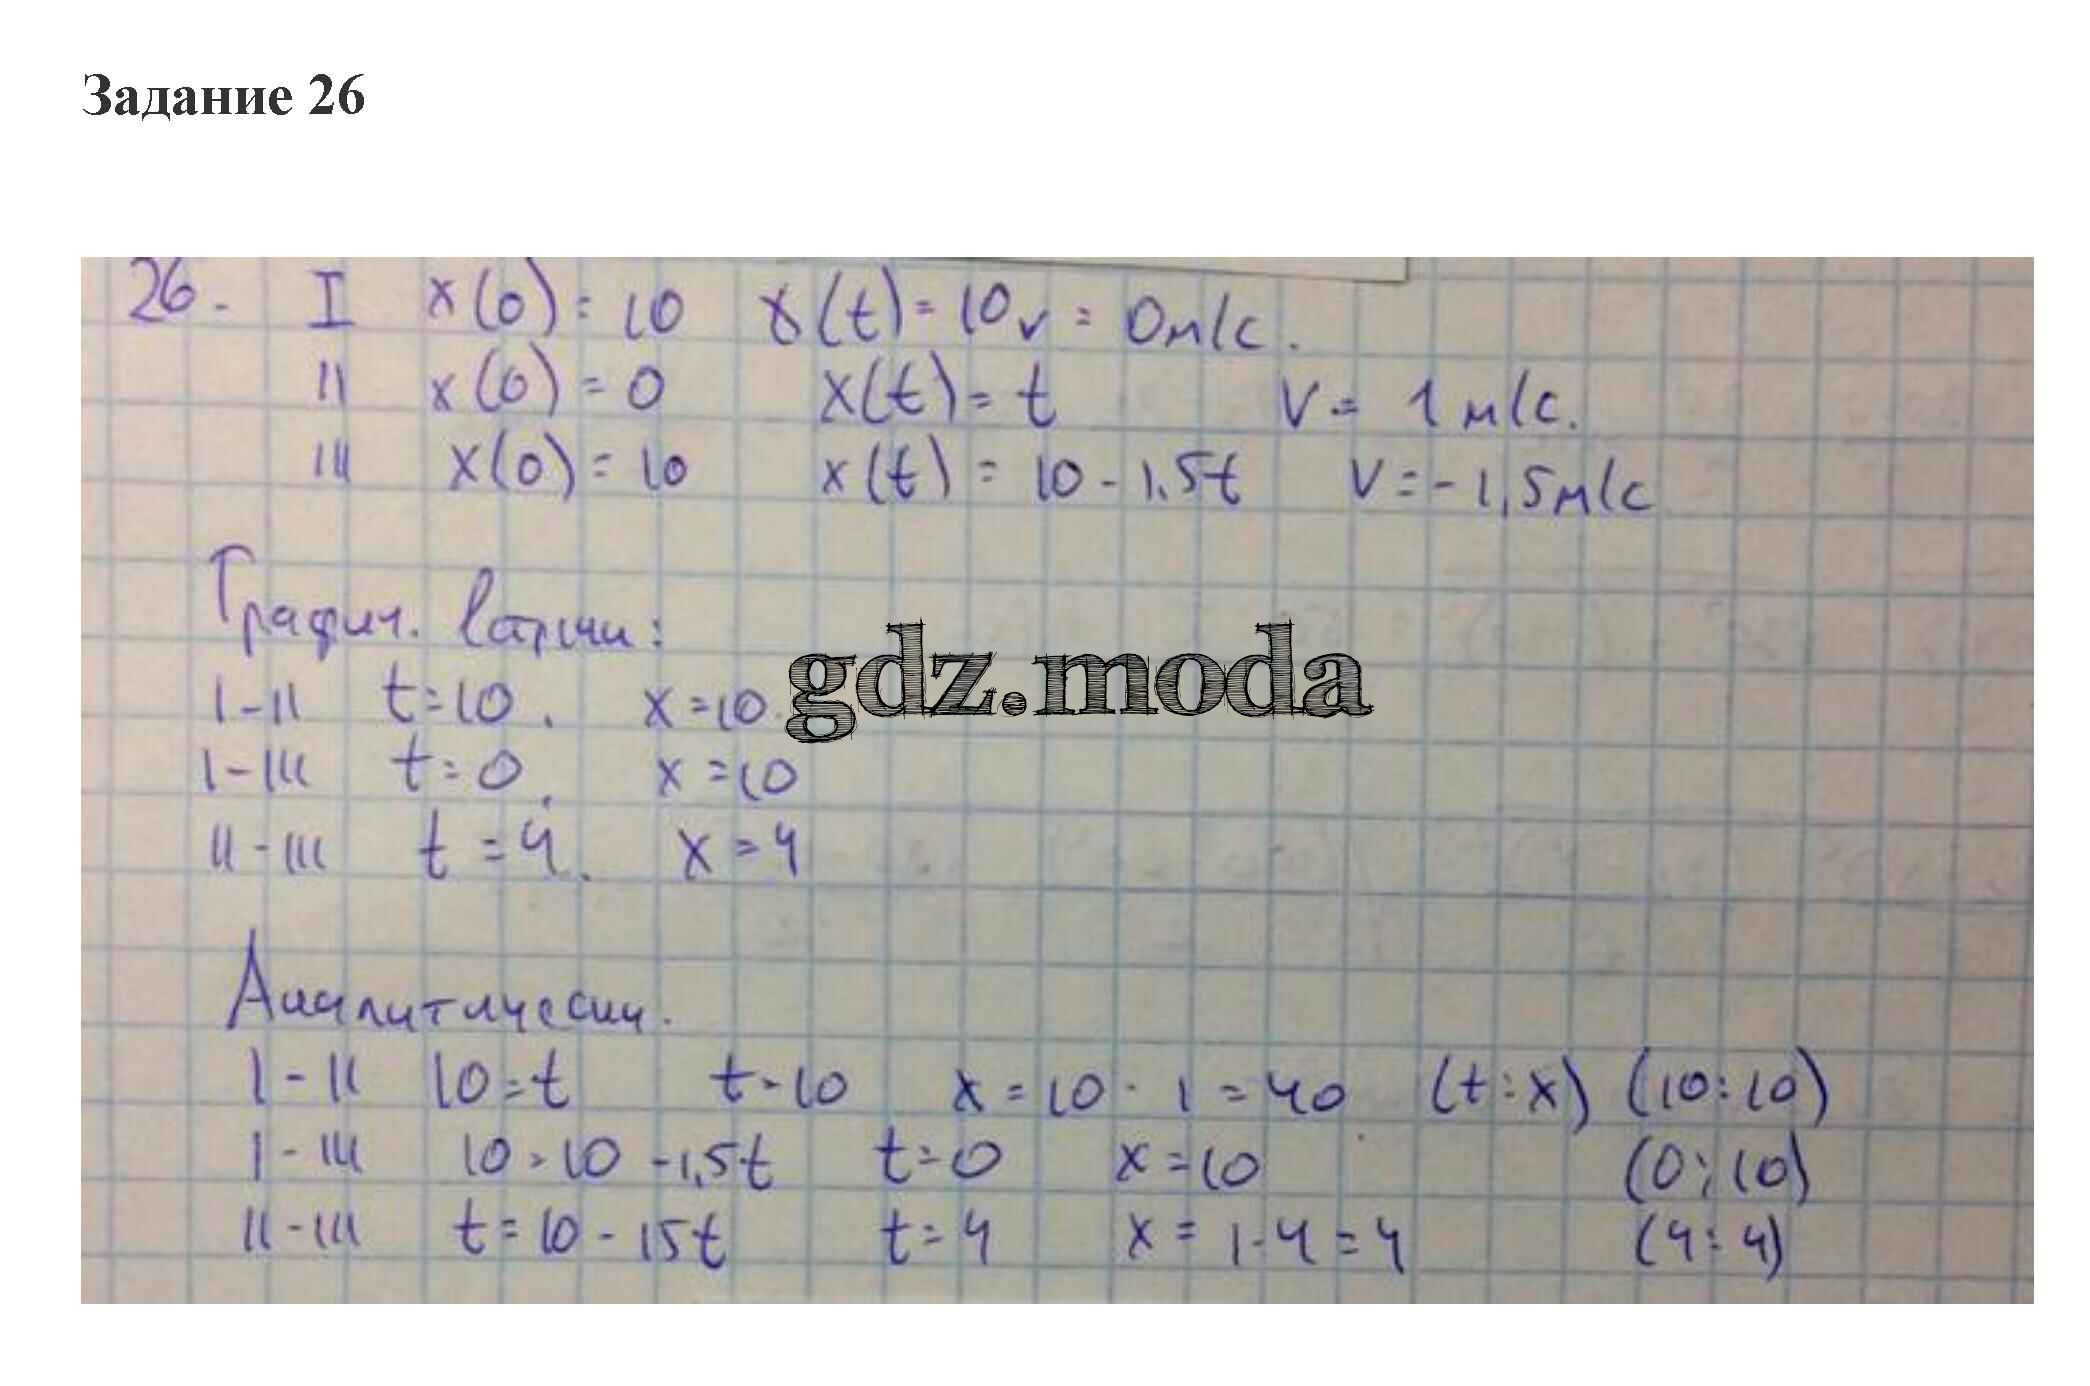 Задание 26
26. I x(0) = 10 x(t) = 10 v = 0 м/с.
II x(0) = 0 x(t) = t V = 1 м/с.
III x(0) = 10 x(t) = 10 - 1.5t V = -1,5 м/с
Графич.
gdz.moda
I-II t=10. x=10.
I-III t=0. x=10
II-III t=4. x=4
Аналитически.
I-II 10=t t=10 x=10·1=40 (t:x) (10:10)
I-III 10=10-1,5t t=0 x=10 (0;10)
II-III t=10-15t t=4 x=1·4=4 (4:4)